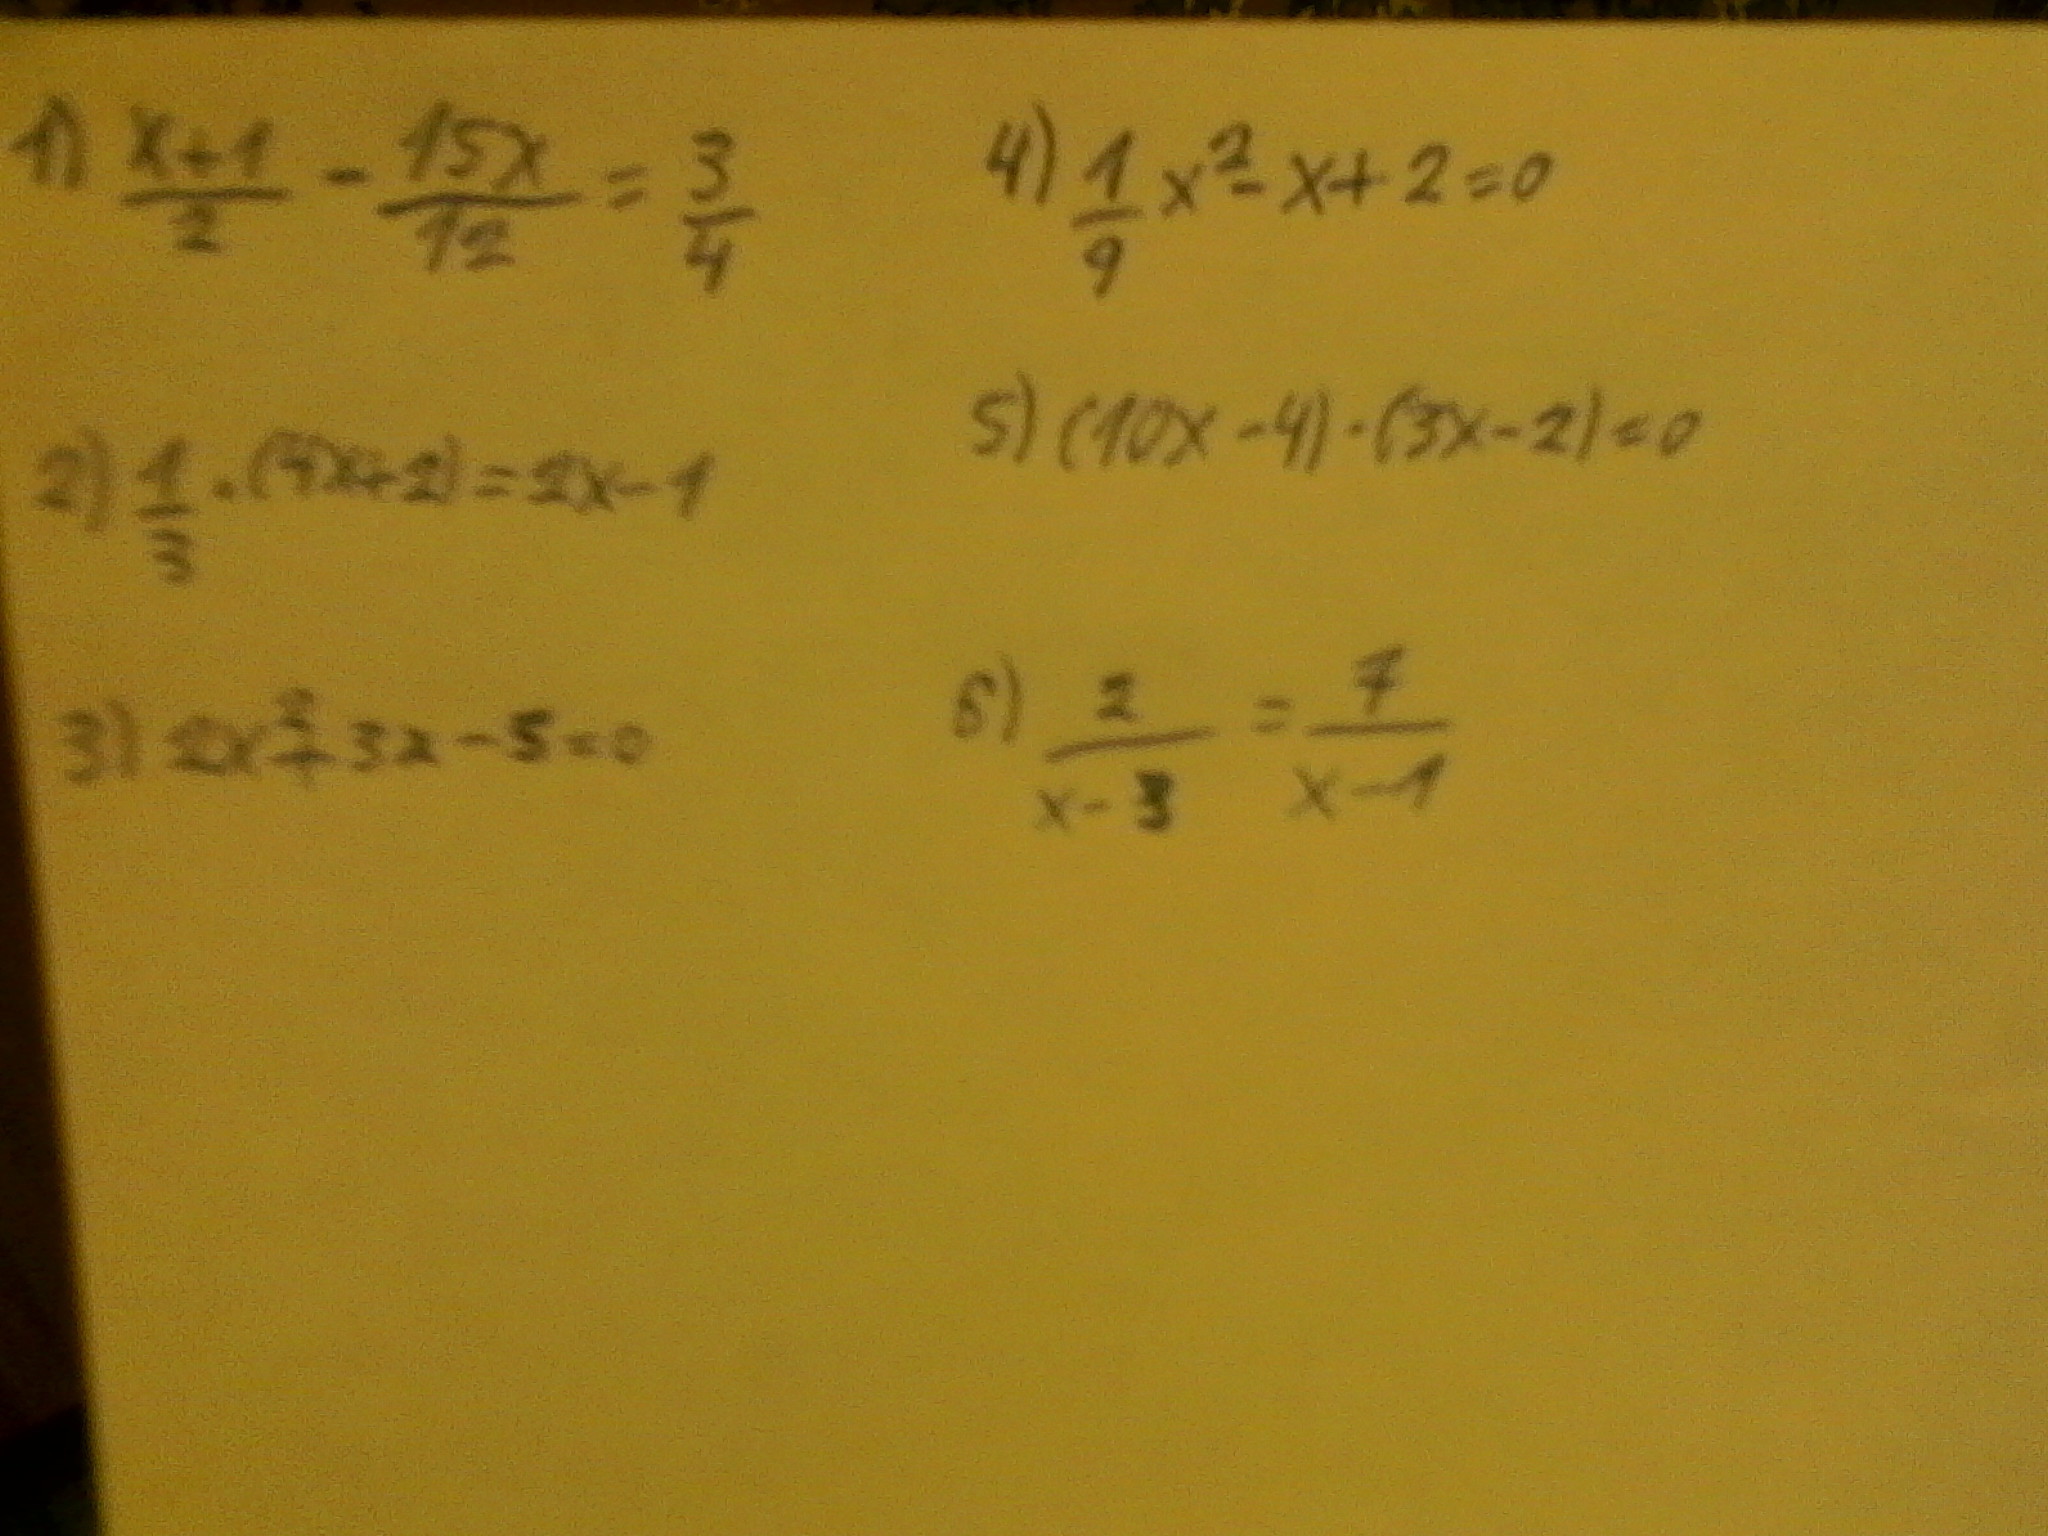 1) \frac{x+1}{2} - \frac{15x}{12} = \frac{3}{4}
2) \frac{1}{3} · (4x+2) = 2x-1
3) 2x²+3x-5=0
4) \frac{1}{9}x²-x+2=0
5) (10x-4)·(3x-2)=0
6) \frac{2}{x-3} = \frac{7}{x-1}